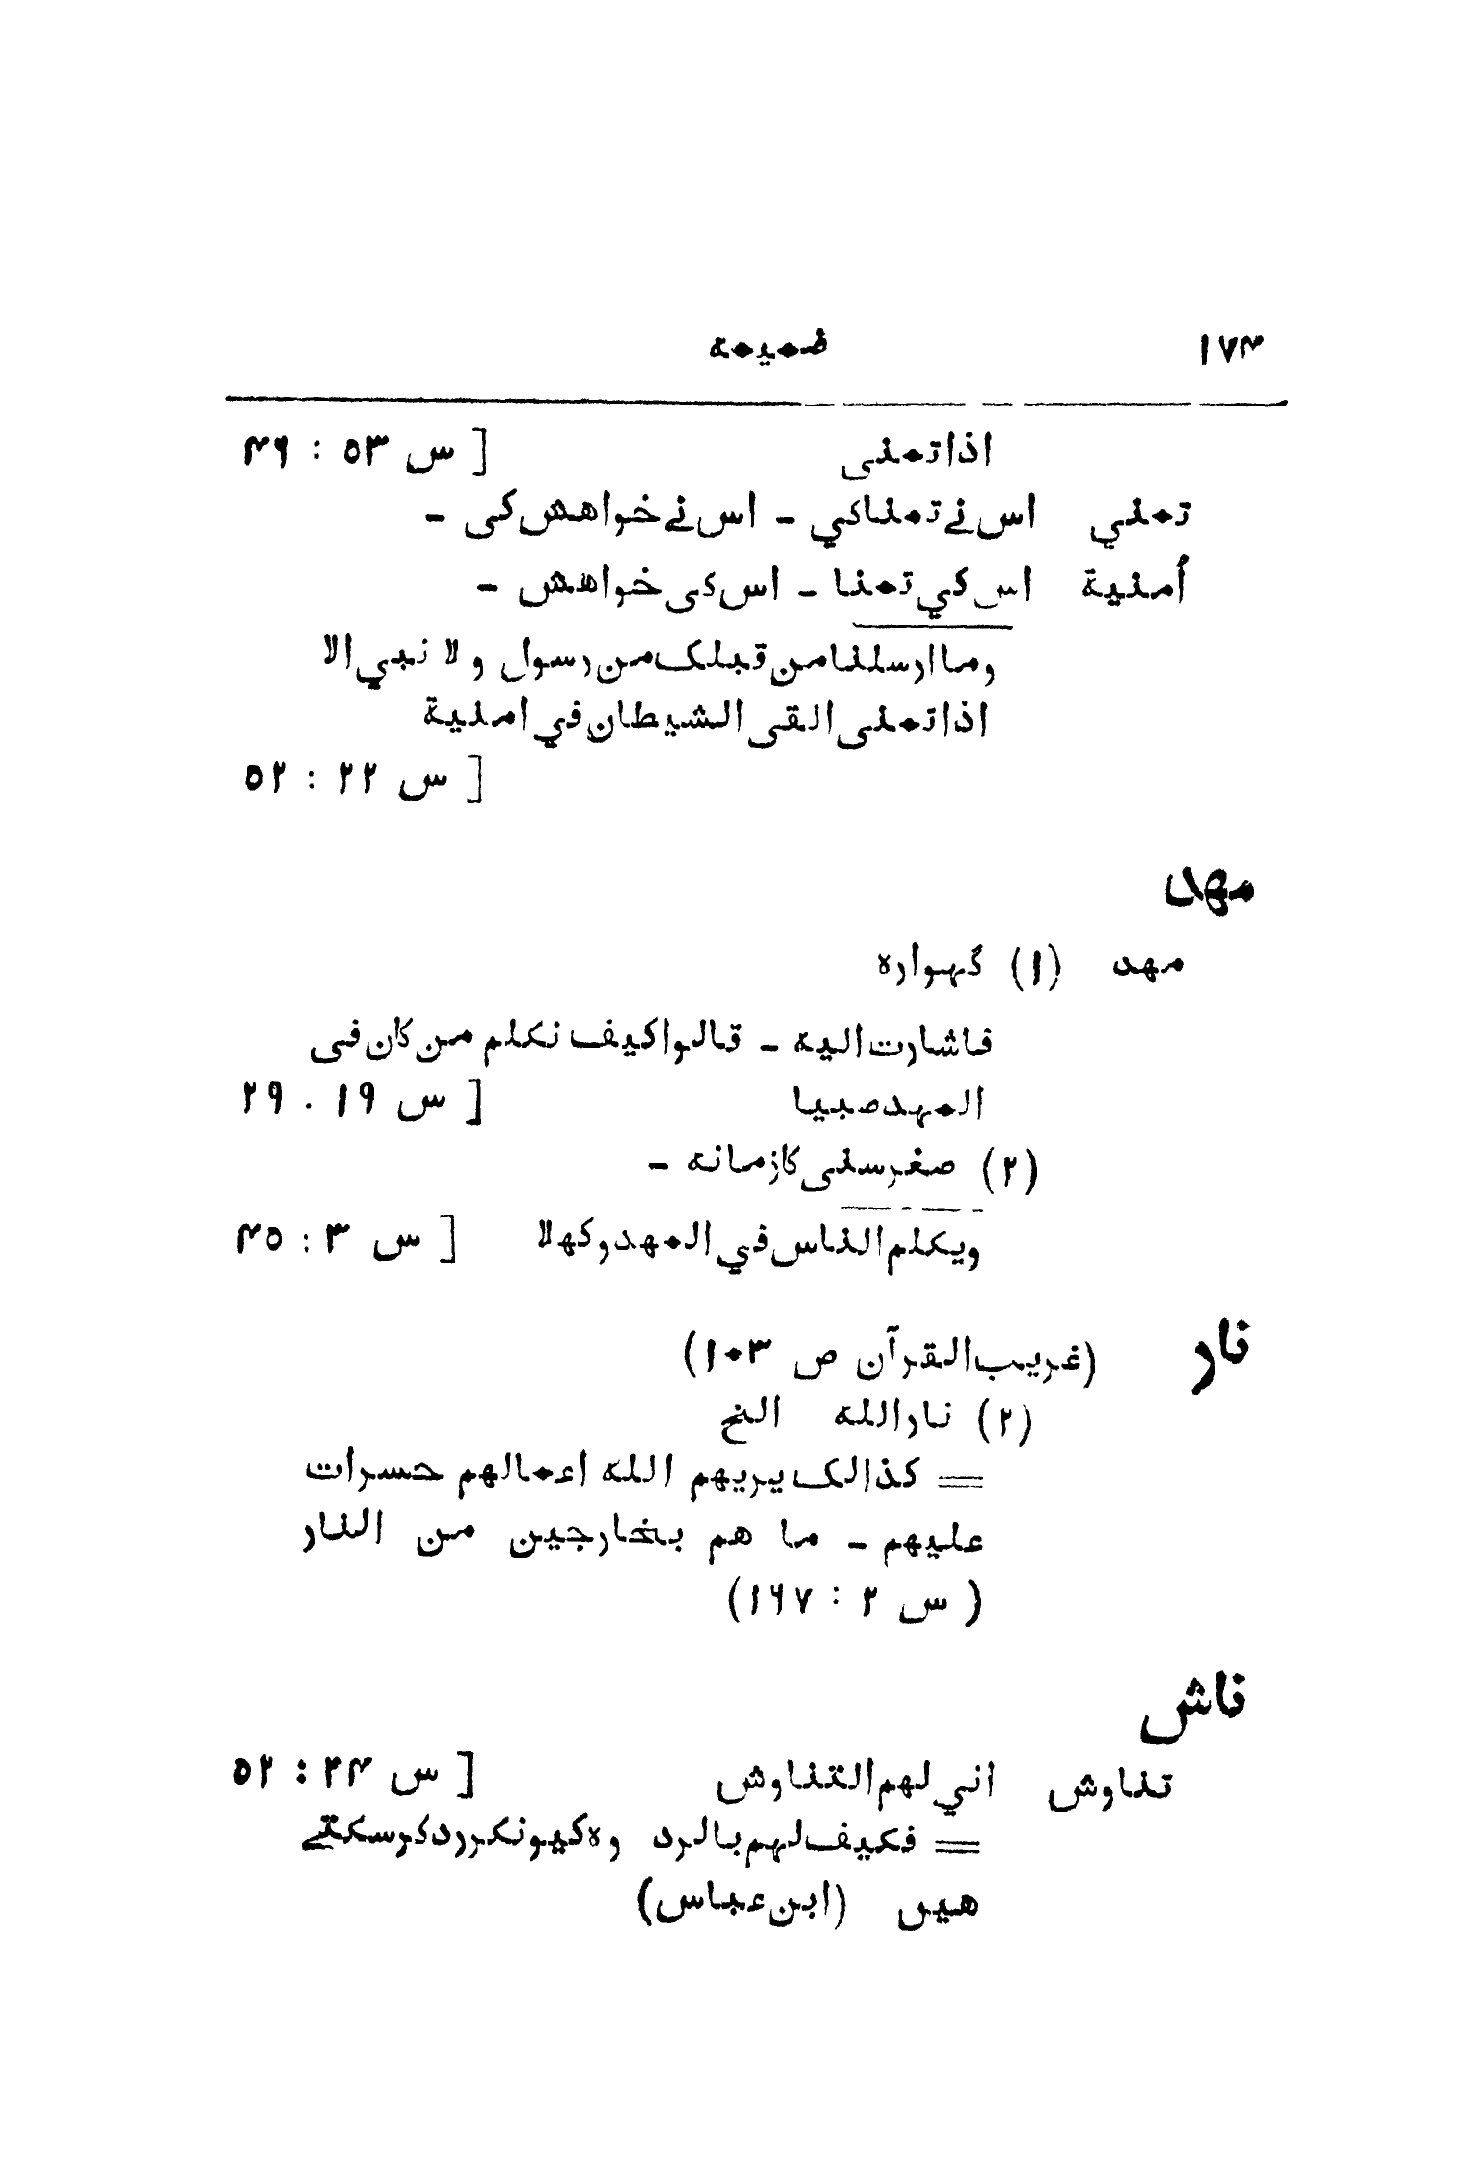 ۱۷۴ ضمیمة
اذا تمنی [ س ۵۳ : ۴۶
تمني اس نے تمنا کي - اس نے خواهش کی -
أمنیة اس کي تمنا - اس کی خواهش -
وما ارسلنا من قبلک من رسول ولا نبي الا
اذا تمنی القی الشیطان في امنیة
[ س ۲۲ : ۵۲
مهد
مهد (۱) گهواره
فاشارت الیه - قالوا کیف نکلم من کان فی
المهد صبیا [ س ۱۹ . ۲۹
(۲) صغر سنی کا زمانه -
ویکلم الناس في المهد وکهلا [ س ۳ : ۴۵
نار (غریب القرآن ص ۱۰۳)
(۲) نار الله الخ
= کذالک یریهم الله اعمالهم حسرات
علیهم - ما هم بخارجین من النار
( س ۲ : ۱۶۷)
ناش
تناوش اني لهم التناوش [ س ۳۴ : ۵۲
= فکیف لهم بالرد وه کیونکر رد کر سکتے
هیں (ابن عباس)